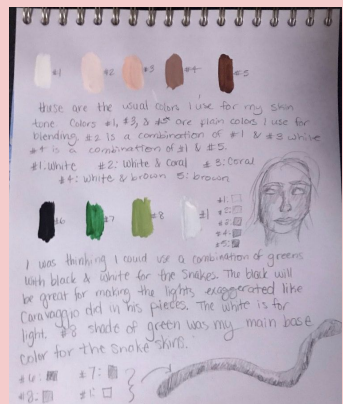 #1 #2 #3 #4 #5
these are the usual colors I use for my skin
tone. Colors #1, #3, & #5 are plain colors I use for
blending. #2 is a combination of #1 & #3 while
#4 is a combination of #1 & #5.
#1: White #2: White & Coral #3: Coral
#4: White & brown 5: brown
#6 #7 #8 #1
#1:
#2:
#3:
#4:
#5:
I was thinking I could use a combination of greens
with black & white for the snakes. The black will
be great for making the lights exaggerated like
Caravaggio did in his pieces. The white is for
light. #8 shade of green was my main base
color for the snake skins.
#6: #7:
#8: #1: